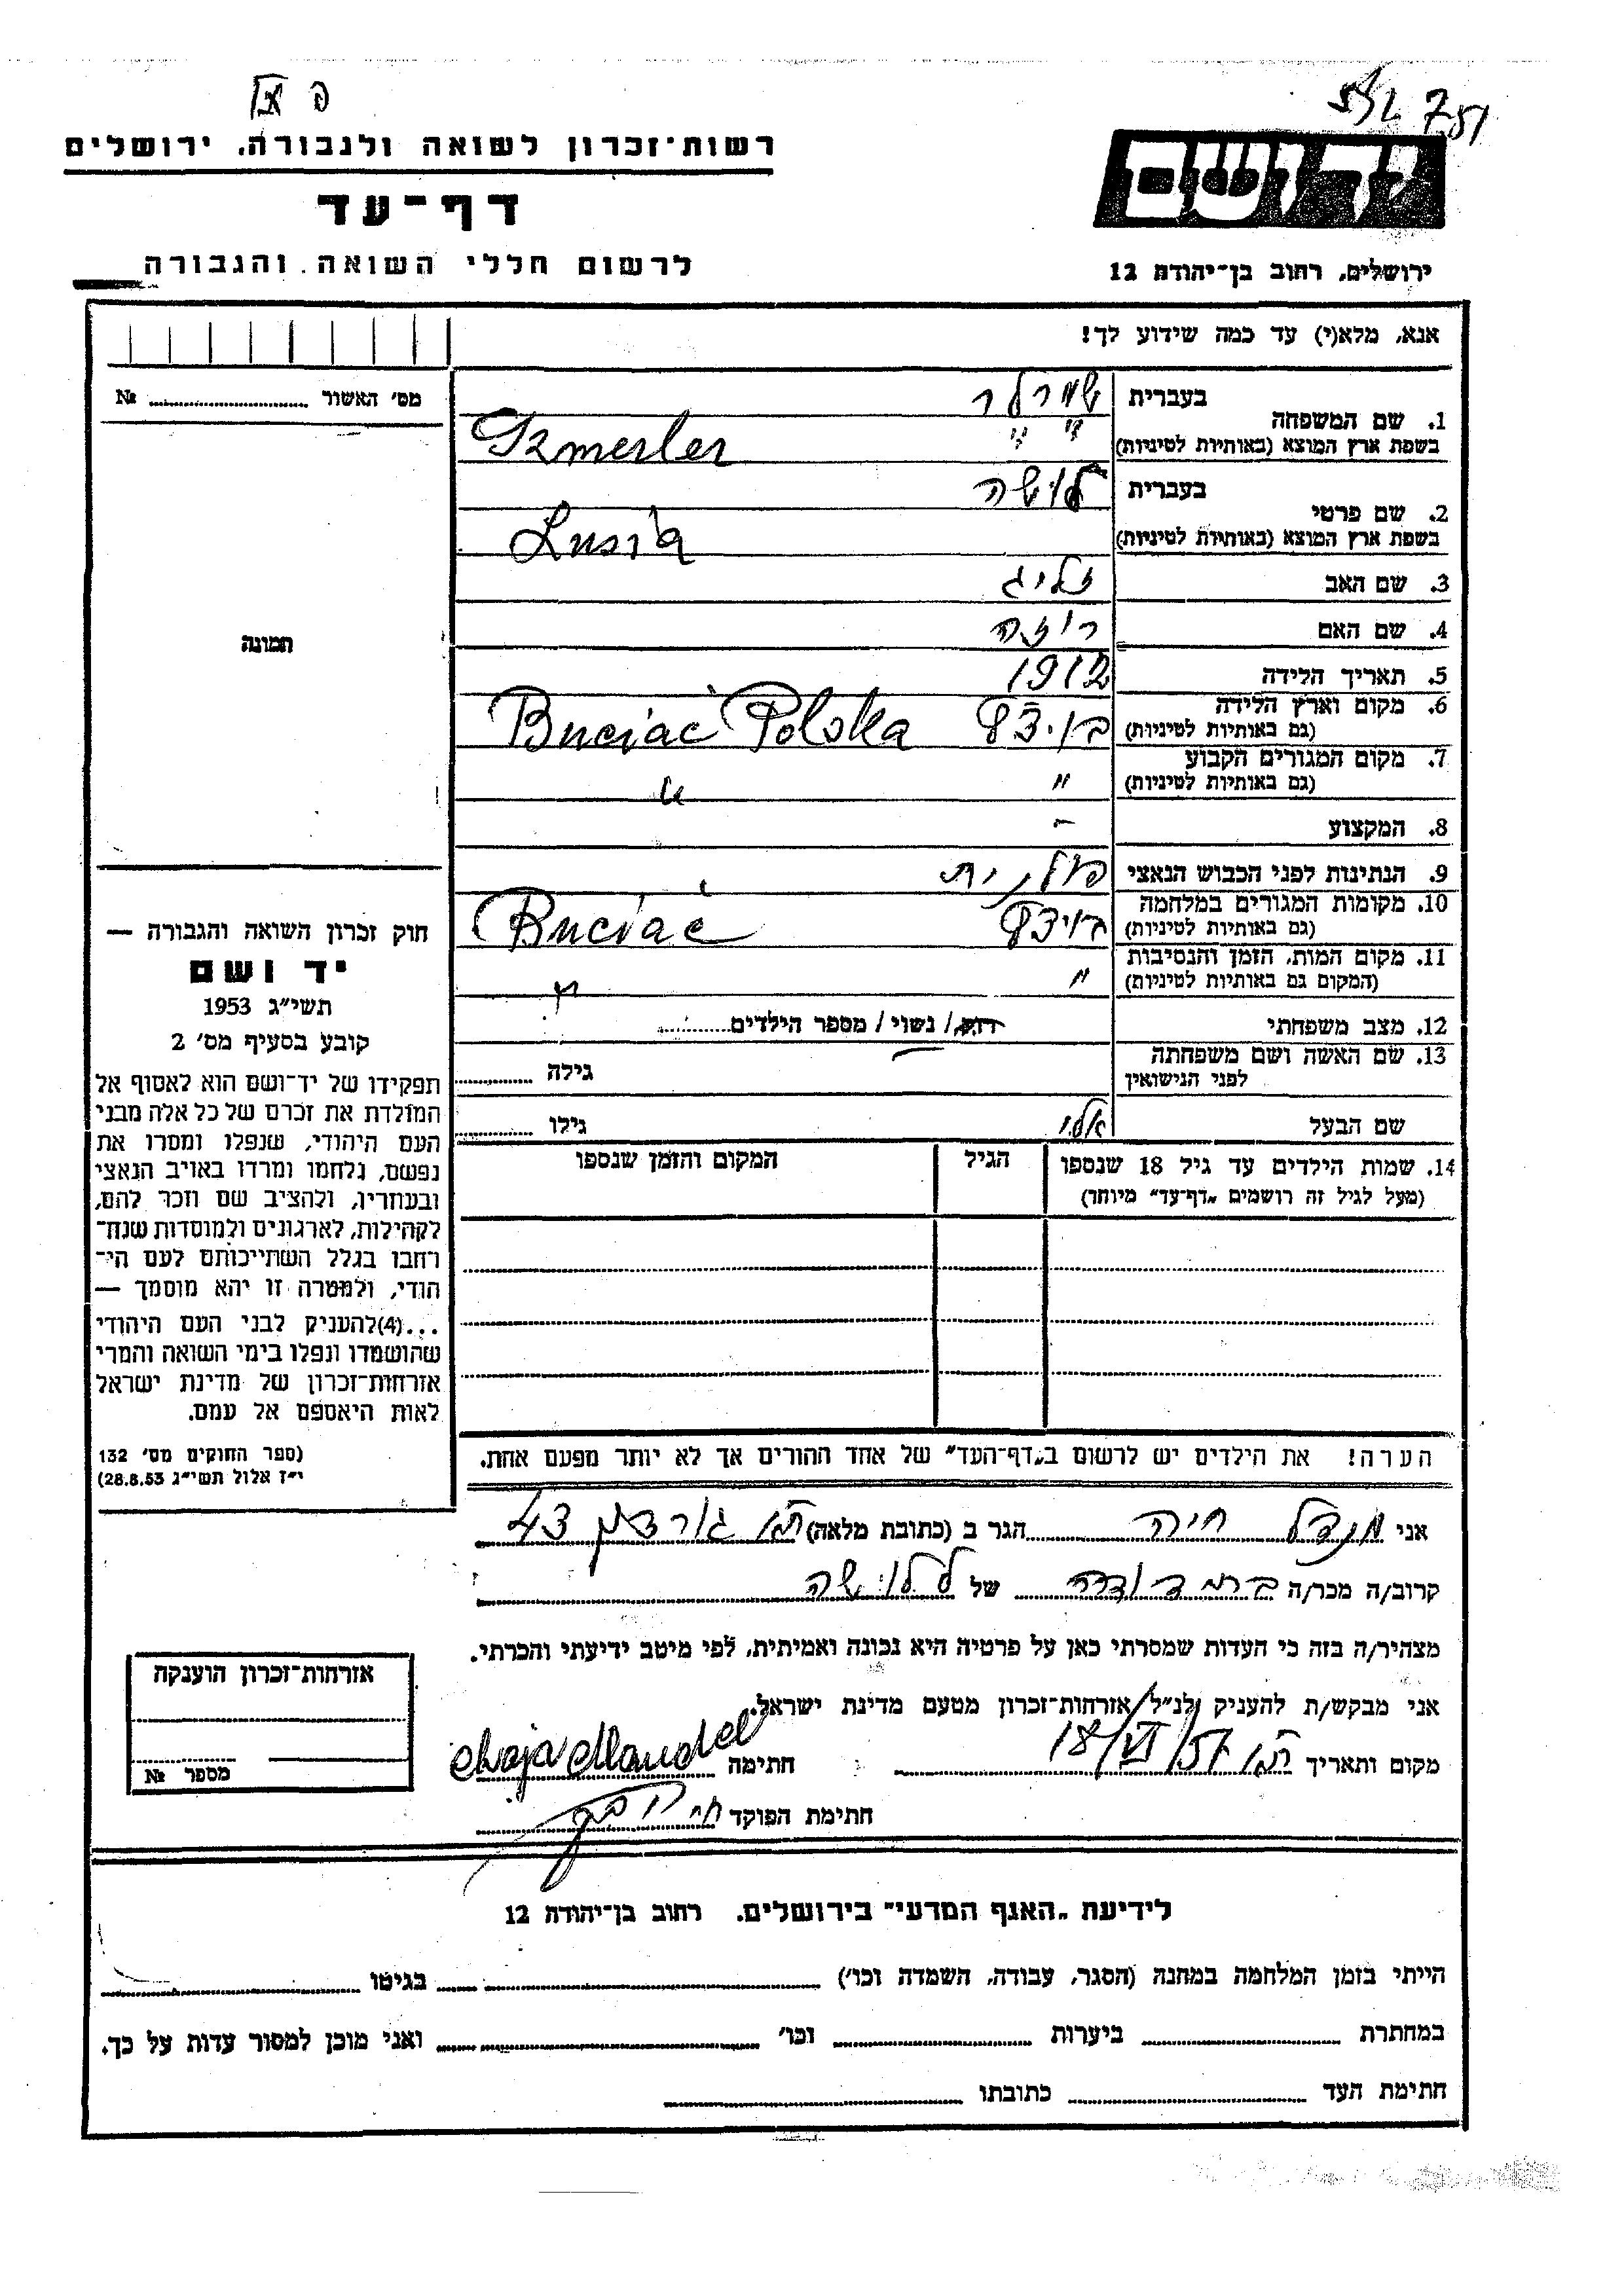 רשות־זכרון לשואה ולגבורה, ירושלים
דף־עד
לרשום חללי השואה והגבורה
יד ושם
ירושלים, רחוב בן־יהודה 12
אנא, מלא(י) עד כמה שידוע לך!
מס' האשור № 
1. שם המשפחה
בעברית שמרלר
בשפת ארץ המוצא (באותיות לטיניות) Szmerler
2. שם פרטי
בעברית לושה
בשפת ארץ המוצא (באותיות לטיניות) Lusia
3. שם האב זליג
4. שם האם רוזה
5. תאריך הלידה 1912
6. מקום וארץ הלידה
(גם באותיות לטיניות) Buczac Polska
7. מקום המגורים הקבוע
(גם באותיות לטיניות) " "
8. המקצוע -
9. הנתינות לפני הכבוש הנאצי פולנית
10. מקומות המגורים במלחמה
(גם באותיות לטיניות) Buczac
11. מקום המות, הזמן והנסיבות
(המקום גם באותיות לטיניות) " "
12. מצב משפחתי רוק / נשוי / מספר הילדים
13. שם האשה ושם משפחתה
לפני הנישואין
גילה
שם הבעל גילו
14. שמות הילדים עד גיל 18 שנספו
(מעל לגיל זה רושמים „דף־עד" מיוחד)
הגיל
המקום והזמן שנספו
הערה! את הילדים יש לרשום ב„דף־העד" של אחד ההורים אך לא יותר מפעם אחת.
תמונה
חוק זכרון השואה והגבורה —
יד ושם
תשי"ג 1953
קובע בסעיף מס' 2
תפקידו של יד־ושם הוא לאסוף אל
המולדת את זכרם של כל אלה מבני
העם היהודי, שנפלו ומסרו את
נפשם, נלחמו ומרדו באויב הנאצי
ובעוזריו, ולהציב שם וזכר להם,
לקהילות, לארגונים ולמוסדות שנח־
רחבו בגלל השתייכותם לעם הי־
הודי, ולמטרה זו יהא מוסמך —
...(4)להעניק לבני העם היהודי
שהושמדו ונפלו בימי השואה והמרי
אזרחות־זכרון של מדינת ישראל
לאות היאספם אל עמם.
(ספר החוקים מס' 132
י"ז אלול תשי"ג 28.8.53)
אני מנדל חיה הגר ב (כתובת מלאה) ת"א גורדון 43
קרוב/ה מכר/ה בת דודה של לושה
מצהיר/ה בזה כי העדות שמסרתי כאן על פרטיה היא נכונה ואמיתית, לפי מיטב ידיעתי והכרתי.
אני מבקש/ת להעניק לנ"ל אזרחות־זכרון מטעם מדינת ישראל.
מקום ותאריך ת"א 18/VI/57 חתימה Chaja Mandel
חתימת הפוקד
אזרחות־זכרון הוענקה
מספר №
לידיעת „האגף המדעי" בירושלים, רחוב בן־יהודה 12
הייתי בזמן המלחמה במחנה (הסגר, עבודה, השמדה וכו') בגיטו
במחתרת ביערות וכו' ואני מוכן למסור עדות על כך.
חתימת העד כתובתו